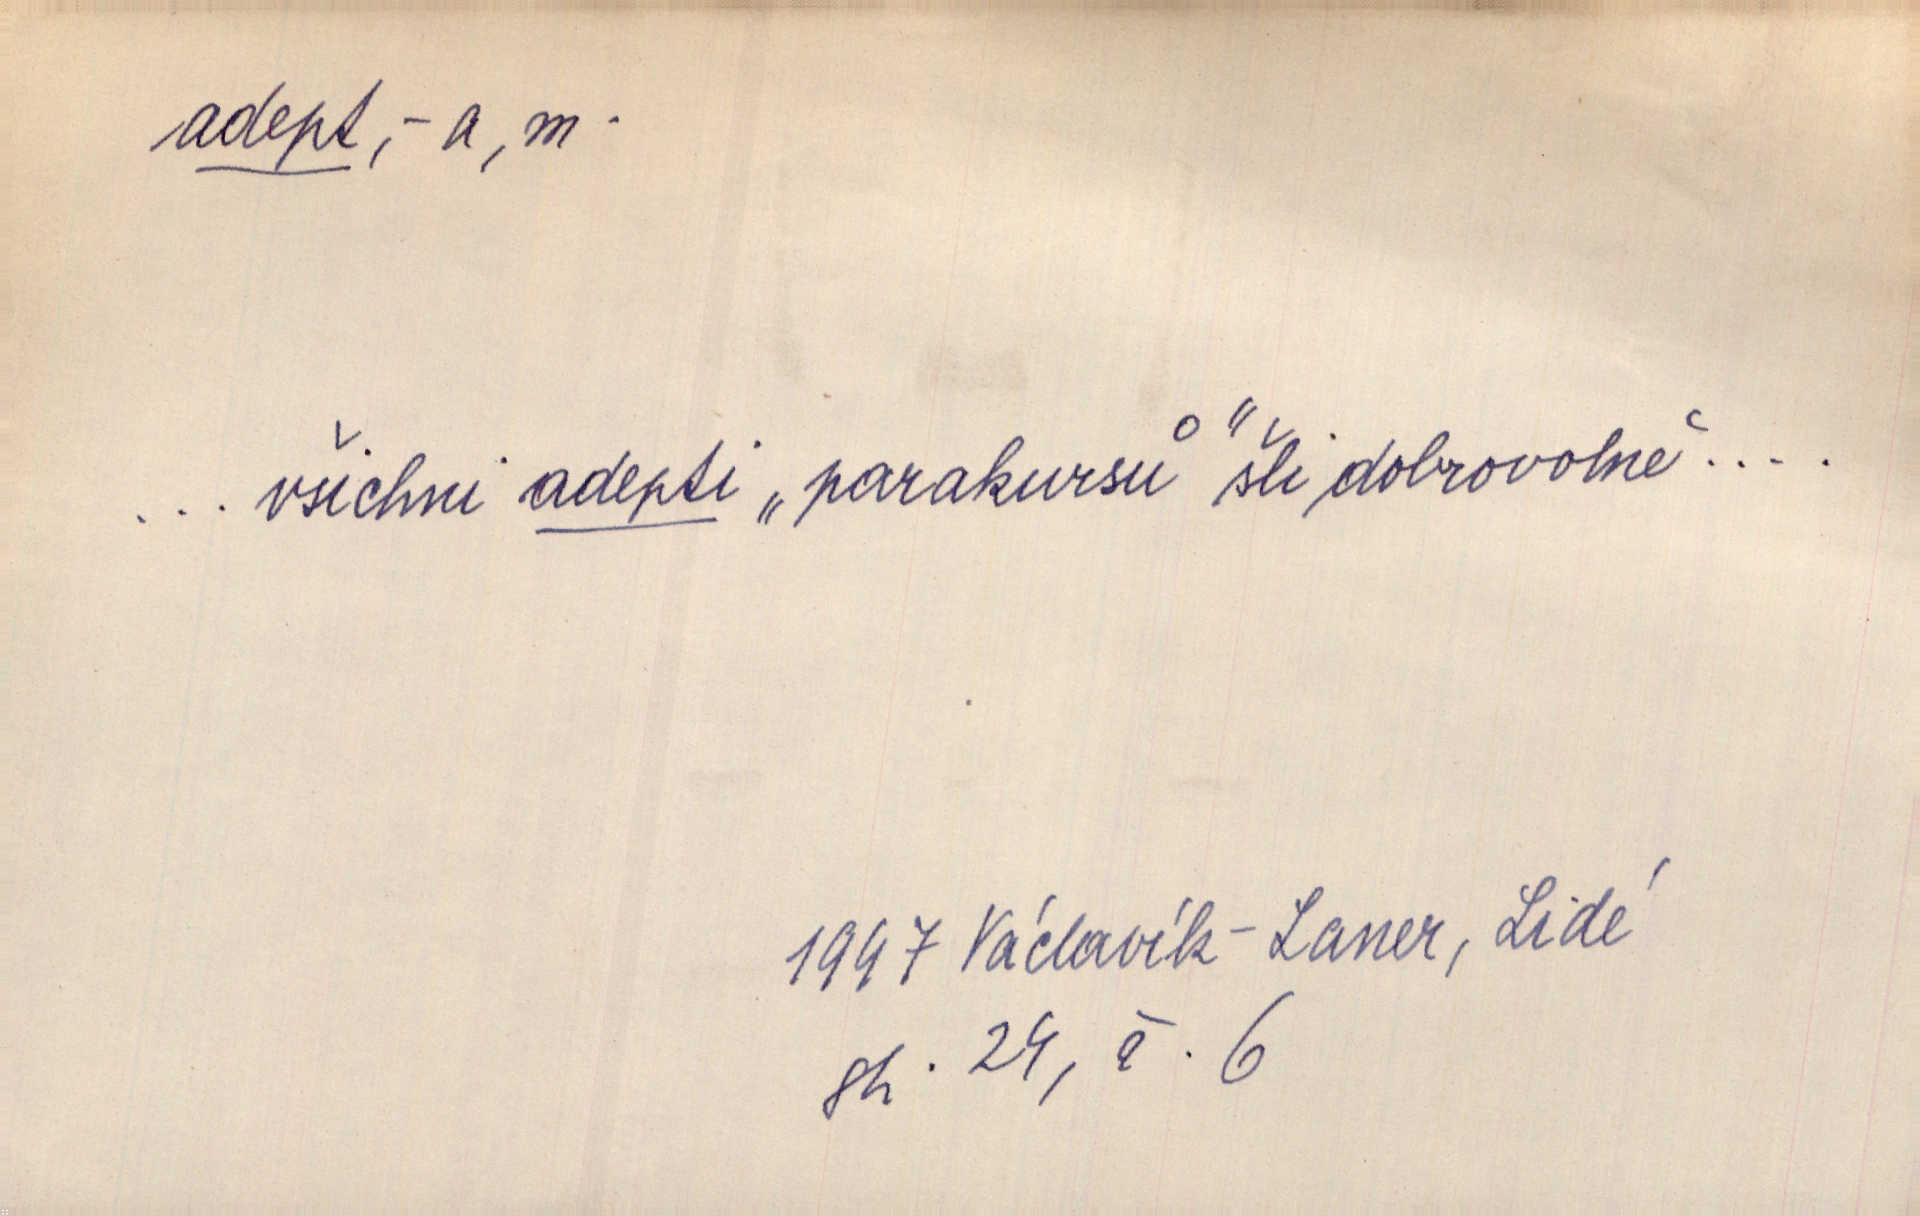 adept, -a, m.
... všichni adepti „parakursů" šli dobrovolně....
1947 Václavík-Laner, Lidé
gh. 24, č. 6